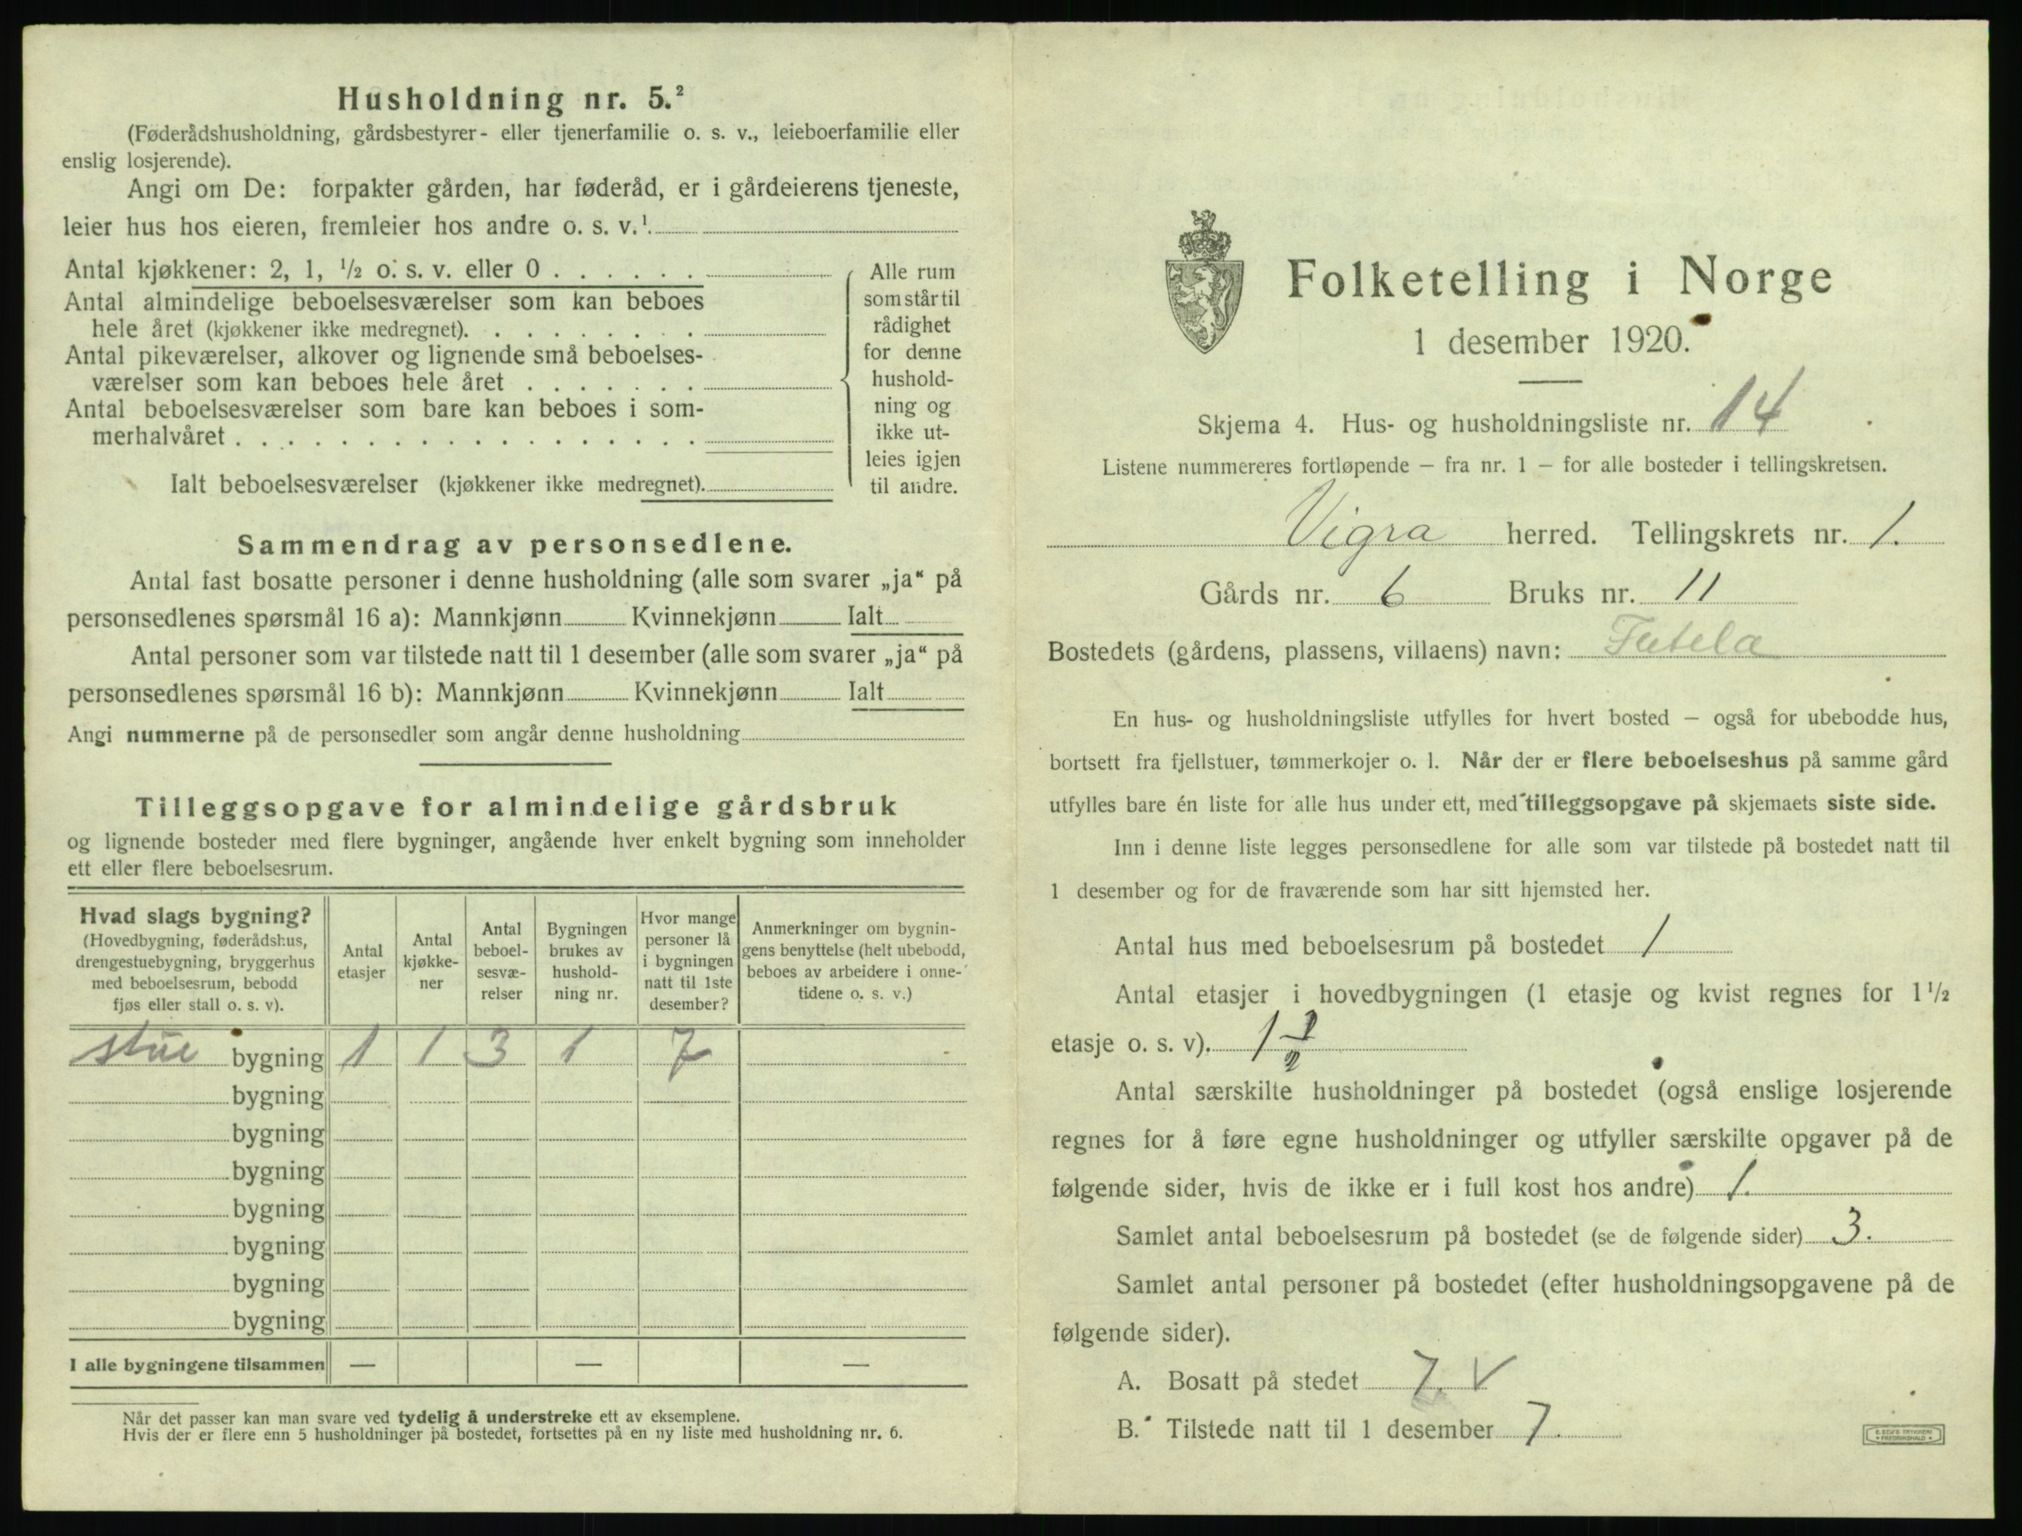 Husholdning nr. 5.²
(Føderådshusholdning, gårdsbestyrer- eller tjenerfamilie o. s. v., leieboerfamilie eller
enslig losjerende).
Angi om De: forpakter gården, har føderåd, er i gårdeierens tjeneste,
leier hus hos eieren, fremleier hos andre o. s. v.¹
Antal kjøkkener: 2, 1, ½ o. s. v. eller 0 . . . . . .
Antal almindelige beboelsesværelser som kan beboes
hele året (kjøkkener ikke medregnet). . . . . . . . .
Antal pikeværelser, alkover og lignende små beboelses-
værelser som kan beboes hele året . . . . . . .
Antal beboelsesværelser som bare kan beboes i som-
merhalvåret . . . . . . . . . . . . . . . . . .
Ialt beboelsesværelser (kjøkkener ikke medregnet).
Alle rum
som står til
rådighet
for denne
hushold-
ning og
ikke ut-
leies igjen
til andre.
Sammendrag av personsedlene.
Antal fast bosatte personer i denne husholdning (alle som svarer „ja“ på
personsedlenes spørsmål 16 a): Mannkjønn Kvinnekjønn Ialt
Antal personer som var tilstede natt til 1 desember (alle som svarer „ja“ på
personsedlenes spørsmål 16 b): Mannkjønn Kvinnekjønn Ialt
Angi nummerne på de personsedler som angår denne husholdning
Tilleggsopgave for almindelige gårdsbruk
og lignende bosteder med flere bygninger, angående hver enkelt bygning som inneholder
ett eller flere beboelsesrum.
Hvad slags bygning?
(Hovedbygning, føderådshus,
drengestuebygning, bryggerhus
med beboelsesrum, bebodd
fjøs eller stall o. s. v).
Antal
etasjer
Antal
kjøkke-
ner
Antal
beboel-
sesvæ-
relser
Bygningen
brukes av
hushold-
ning nr.
Hvor mange
personer lå
i bygningen
natt til 1ste
desember?
Anmerkninger om bygnin-
gens benyttelse (helt ubebodd,
beboes av arbeidere i onne-
tidene o. s. v.)
stue bygning 1 1 3 1 7
bygning
bygning
bygning
bygning
bygning
bygning
bygning
I alle bygningene tilsammen — — —
Når det passer kan man svare ved tydelig å understreke ett av eksemplene.
Hvis der er flere enn 5 husholdninger på bostedet, fortsettes på en ny liste med husholdning nr. 6.
Folketelling i Norge
1 desember 1920.
Skjema 4. Hus- og husholdningsliste nr. 14
Listene nummereres fortløpende — fra nr. 1 — for alle bosteder i tellingskretsen.
Vigra herred. Tellingskrets nr. 1.
Gårds nr. 6 Bruks nr. 11
Bostedets (gårdens, plassens, villaens) navn:
En hus- og husholdningsliste utfylles for hvert bosted — også for ubebodde hus,
bortsett fra fjellstuer, tømmerkojer o. l. Når der er flere beboelseshus på samme gård
utfylles bare én liste for alle hus under ett, med tilleggsopgave på skjemaets siste side.
Inn i denne liste legges personsedlene for alle som var tilstede på bostedet natt til
1 desember og for de fraværende som har sitt hjemsted her.
Antal hus med beboelsesrum på bostedet 1
Antal etasjer i hovedbygningen (1 etasje og kvist regnes for 1½
etasje o. s. v). 1½
Antal særskilte husholdninger på bostedet (også enslige losjerende
regnes for å føre egne husholdninger og utfyller særskilte opgaver på de
følgende sider, hvis de ikke er i full kost hos andre) 1.
Samlet antal beboelsesrum på bostedet (se de følgende sider) 3.
Samlet antal personer på bostedet (efter husholdningsopgavene på de
følgende sider).
A. Bosatt på stedet 7. V
B. Tilstede natt til 1 desember 7.